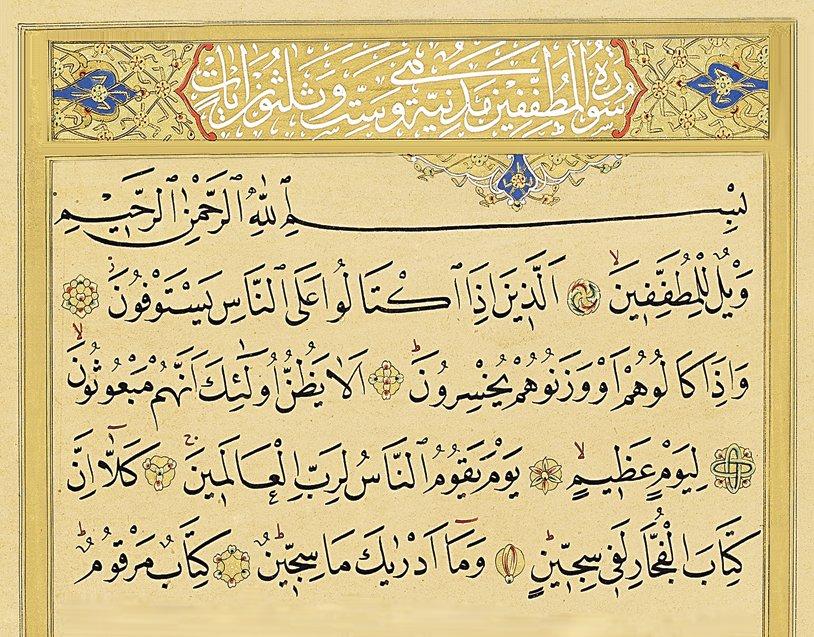 سورة المطففين مدنية وهى ست وثلثون آيات
بِسْمِ ٱللّٰهِ ٱلرَّحْمٰنِ ٱلرَّحٖيمِ
وَيْلٌ لِلْمُطَفِّفٖينَ ۙ اَلَّذٖينَ اِذَا ٱكْتَالُوا عَلَى ٱلنَّاسِ يَسْتَوْفُونَ ۘ
وَاِذَا كَالُوهُمْ اَوْ وَزَنُوهُمْ يُخْسِرُونَ ۜ اَلَا يَظُنُّ اُولٰٓئِكَ اَنَّهُمْ مَبْعُوثُونَ ۙ
لِيَوْمٍ عَظٖيمٍ ۙ يَوْمَ يَقُومُ ٱلنَّاسُ لِرَبِّ ٱلْعَالَمٖينَ ۜ كَلَّٓا اِنَّ
كِتَابَ ٱلْفُجَّارِ لَفٖى سِجّٖينٍ ۜ وَمَٓا اَدْرٰيكَ مَا سِجّٖينٌ ۜ كِتَابٌ مَرْقُومٌ ۜ